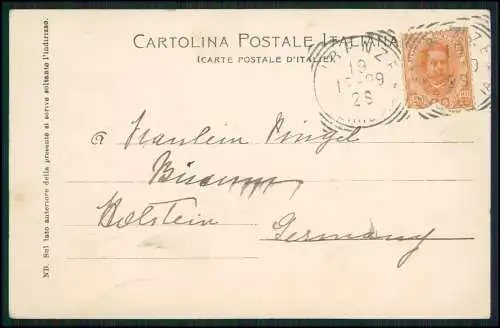 CARTOLINA POSTALE ITALIANA
(CARTE POSTALE D'ITALIE)
NB. Sul lato anteriore della presente si scrive soltanto l'indirizzo.
Fräulein Pingel
Büsum
Holstein
Germany